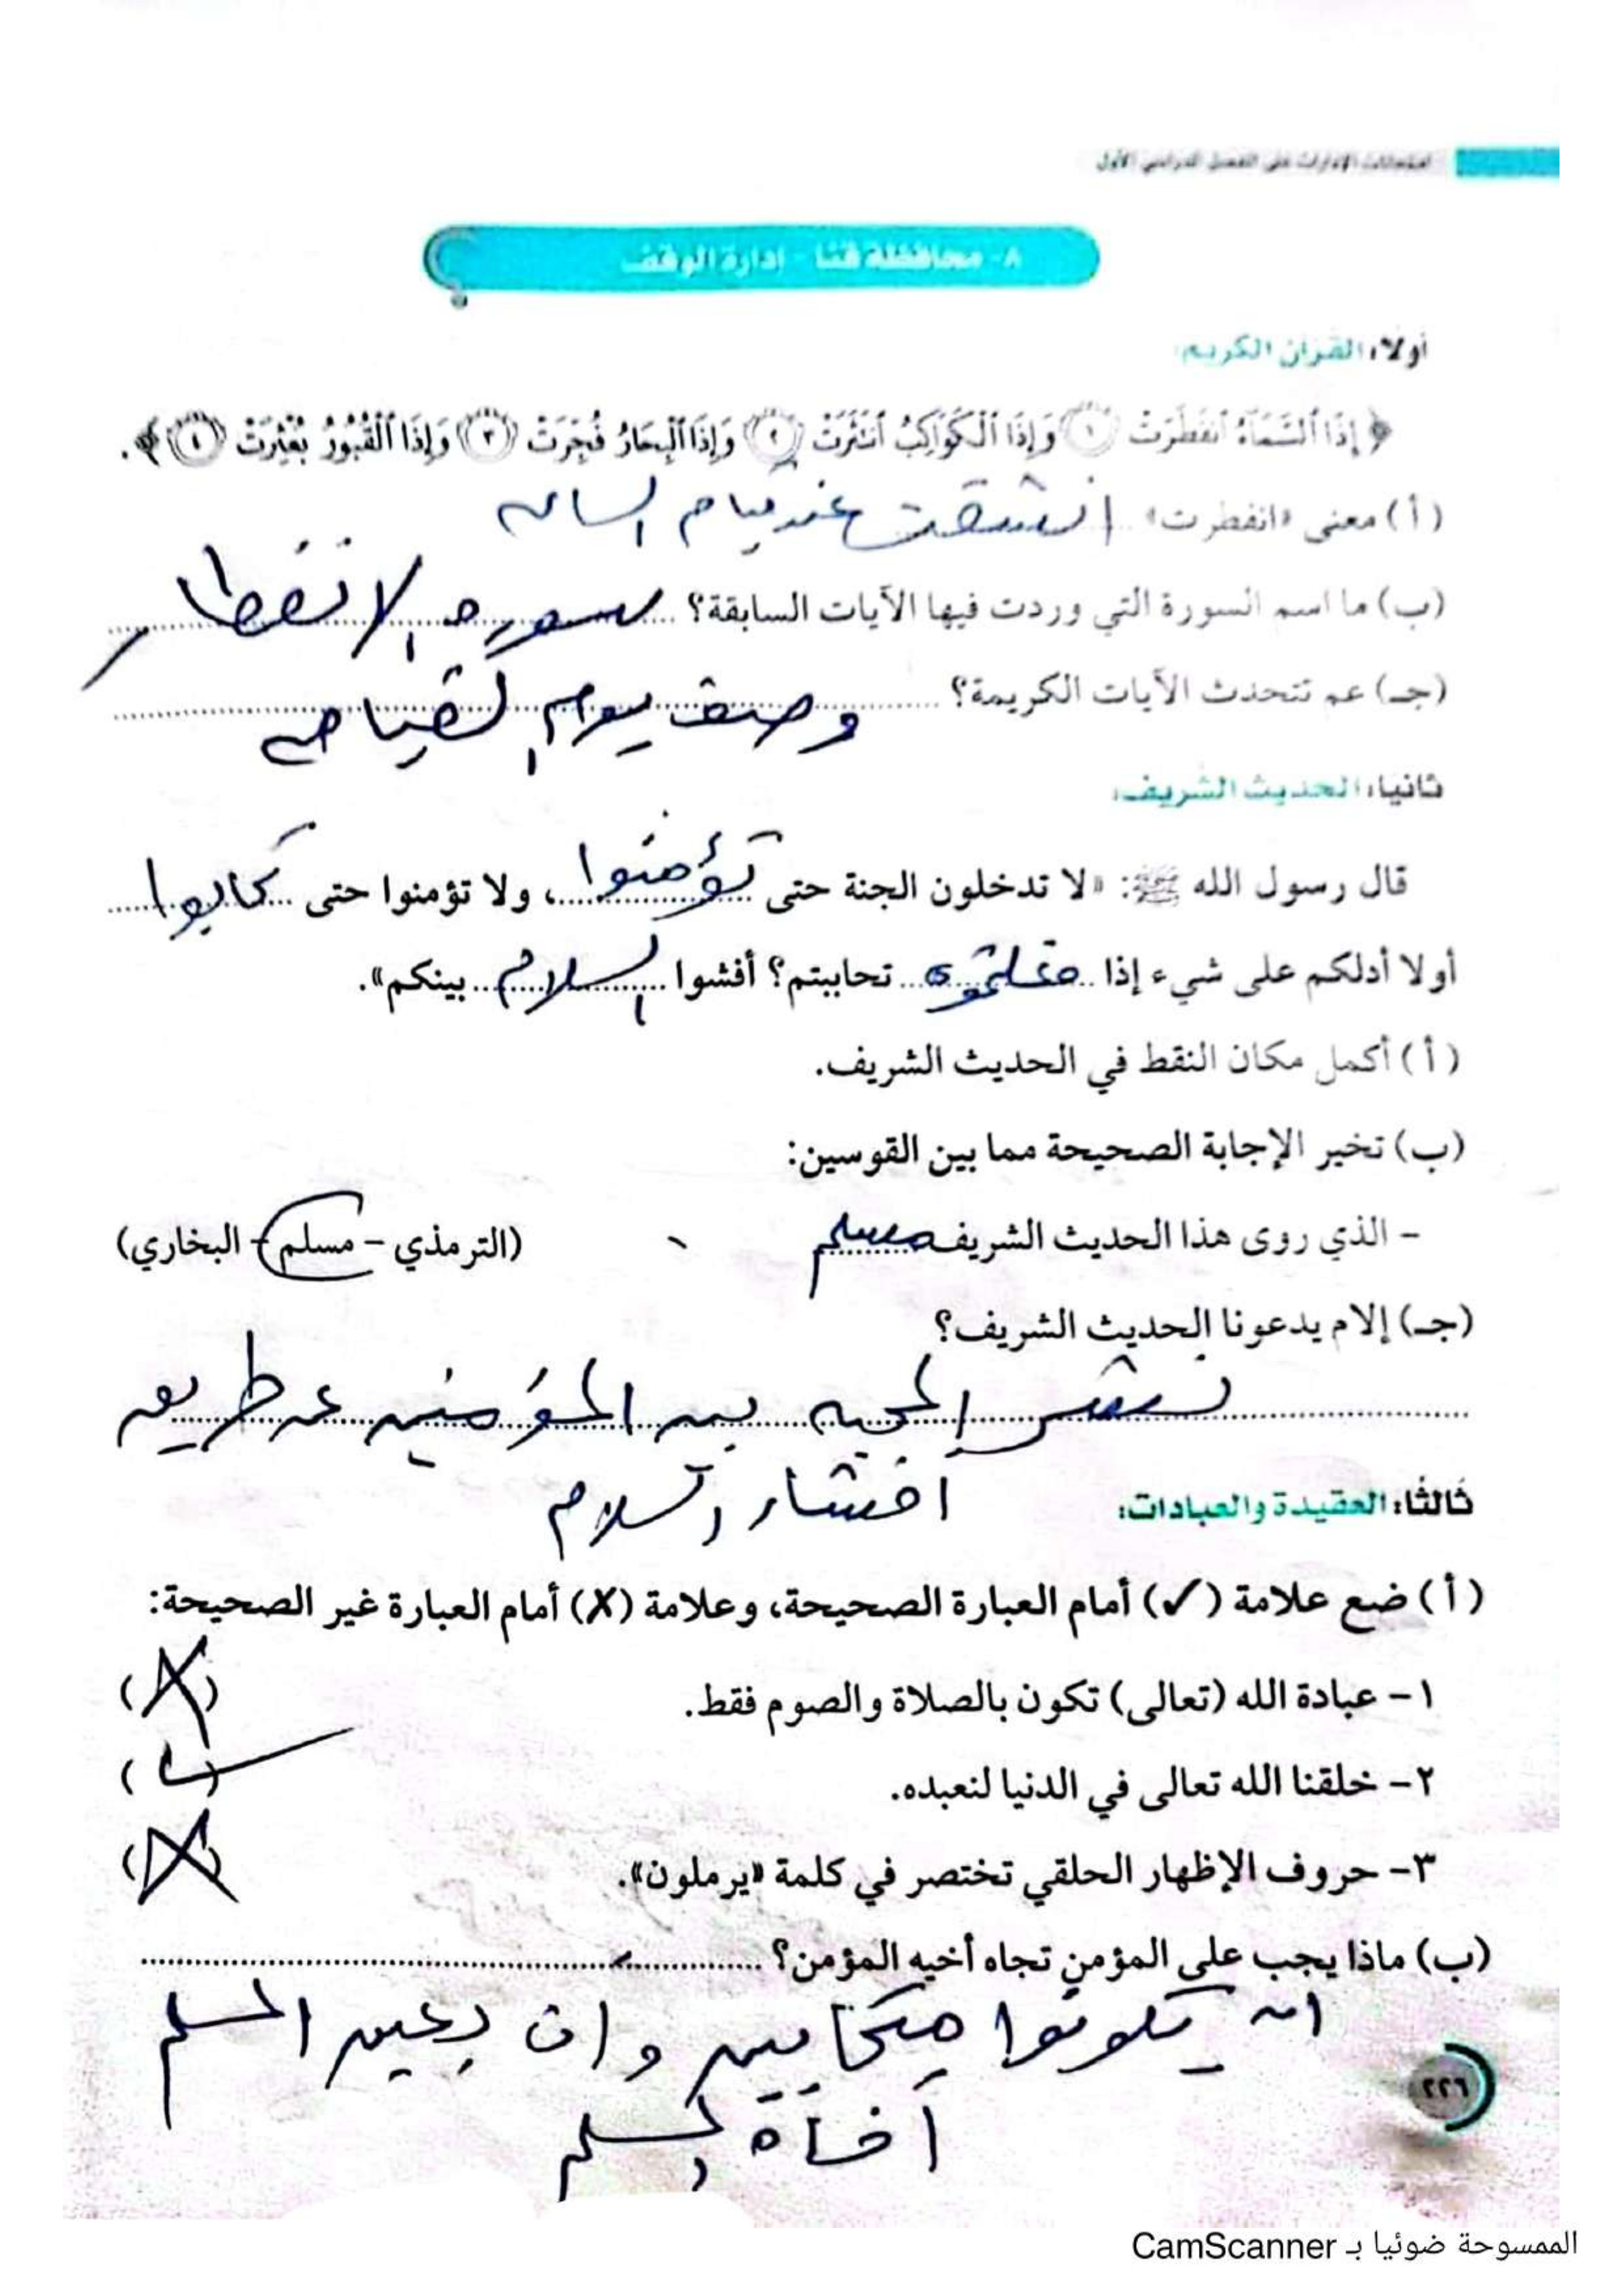 امتحانات الإدارات على الفصل الدراسي الأول
٨- محافظة قنا - إدارة الوقف
أولًا: القرآن الكريم:
﴿ إِذَا ٱلسَّمَآءُ ٱنفَطَرَتْ ١ وَإِذَا ٱلْكَوَاكِبُ ٱنتَثَرَتْ ٢ وَإِذَا ٱلْبِحَارُ فُجِّرَتْ ٣ وَإِذَا ٱلْقُبُورُ بُعْثِرَتْ ٤ ﴾.
(أ) معنى «انفطرت» انشقت عند قيام الساعه
(ب) ما اسم السورة التي وردت فيها الآيات السابقة؟ سوره الانفطار
(جـ) عم تتحدث الآيات الكريمة؟ وصف يوم القيامه
ثانيا: الحديث الشريف:
قال رسول الله ﷺ: «لا تدخلون الجنة حتى تؤمنوا، ولا تؤمنوا حتى تحابوا
أولا أدلكم على شيء إذا فعلتموه تحاببتم؟ أفشوا السلام بينكم».
(أ) أكمل مكان النقط في الحديث الشريف.
(ب) تخير الإجابة الصحيحة مما بين القوسين:
- الذي روى هذا الحديث الشريف مسلم (الترمذي - مسلم - البخاري)
(جـ) إلام يدعونا الحديث الشريف؟
نشر المحبه بين المؤمنين عن طريق
افشاء السلام
ثالثا: العقيدة والعبادات:
(أ) ضع علامة (✓) أمام العبارة الصحيحة، وعلامة (X) أمام العبارة غير الصحيحة:
١- عبادة الله (تعالى) تكون بالصلاة والصوم فقط. (X)
٢- خلقنا الله تعالى في الدنيا لنعبده. (✓)
٣- حروف الإظهار الحلقي تختصر في كلمة «يرملون». (X)
(ب) ماذا يجب على المؤمن تجاه أخيه المؤمن؟
ان يكونوا متحابين وان يعين المسلم
أخاه المسلم
٢٢٦
الممسوحة ضوئيا بـ CamScanner